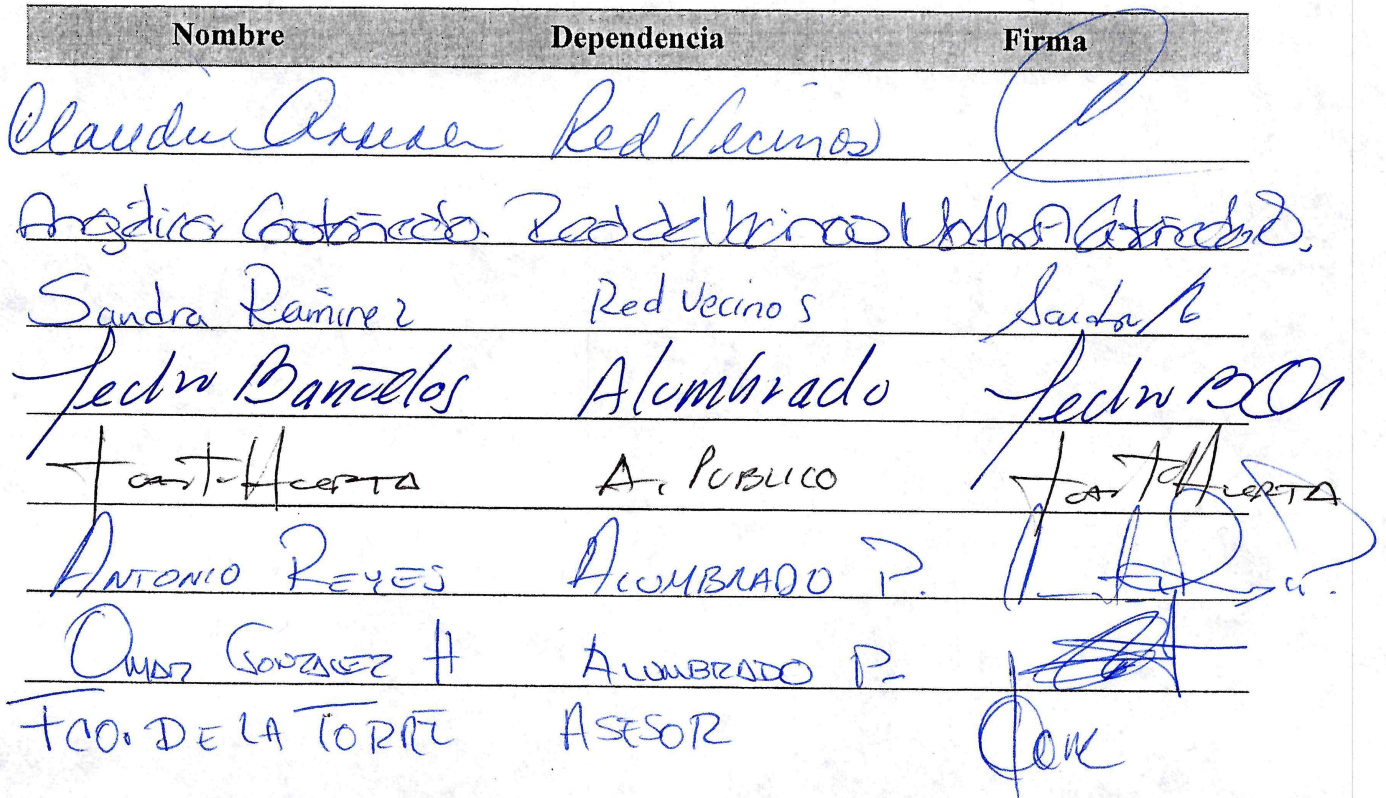 Nombre Dependencia Firma
Claudia Red Vecinos
Angélica Castañeda. Red de Vecinos
Sandra Ramirez Red Vecinos Sandra
Pedro Bañuelos Alumbrado Pedro
Huerta A. PUBLICO Huerta
ANTONIO REYES ALUMBRADO P.
OMAR GONZALEZ H ALUMBRADO P.
FCO. DE LA TORRE ASESOR